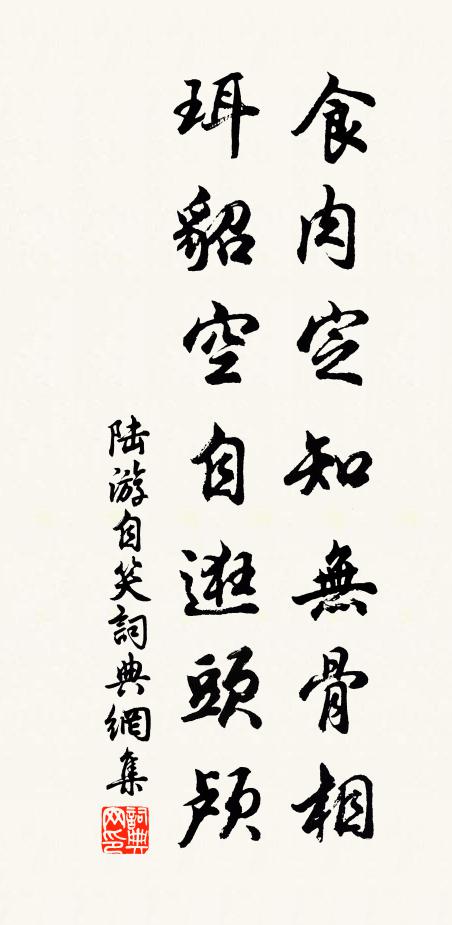 食肉定知無骨相
珥貂空自逛頭颅
陆游自笑詞典網集
詞典网印